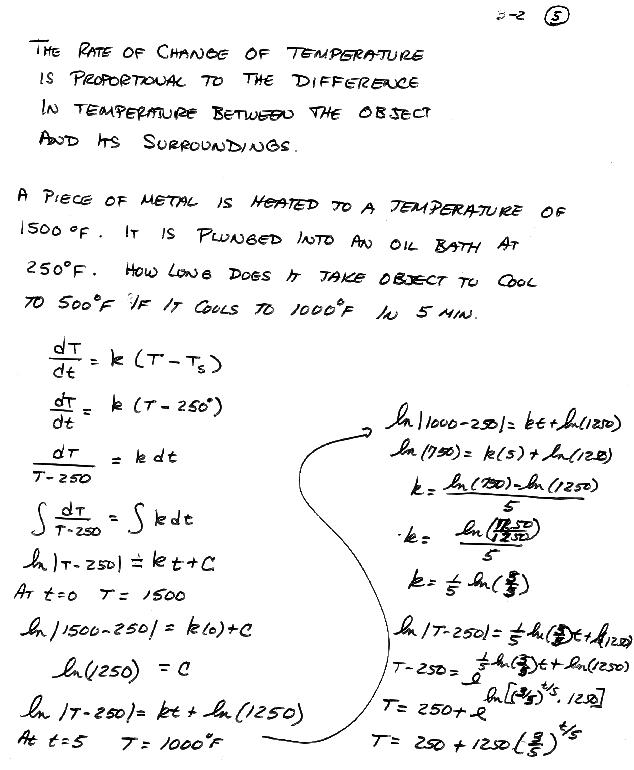 5-2 ⑤
THE RATE OF CHANGE OF TEMPERATURE
IS PROPORTIONAL TO THE DIFFERENCE
IN TEMPERATURE BETWEEN THE OBJECT
AND ITS SURROUNDINGS.
A PIECE OF METAL IS HEATED TO A TEMPERATURE OF
1500 °F. IT IS PLUNGED INTO AN OIL BATH AT
250°F. HOW LONG DOES IT TAKE OBJECT TO COOL
TO 500°F IF IT COOLS TO 1000°F IN 5 MIN.
dT/dt = k (T - Ts)
dT/dt = k (T - 250°)
dT/(T - 250) = k dt
∫ dT/(T-250) = ∫ k dt
ln |T - 250| = kt + C
AT t=0 T = 1500
ln |1500-250| = k(0)+C
ln(1250) = C
ln |T-250| = kt + ln (1250)
At t=5 T = 1000°F
ln |1000-250| = kt + ln(1250)
ln (750) = k(5) + ln(1250)
k = (ln(750) - ln(1250))/5
k = ln(750/1250)/5
k = 1/5 ln(3/5)
ln |T-250| = 1/5 ln(3/5)t + ln(1250)
T-250 = e^(1/5 ln(3/5)t + ln(1250))
T = 250 + e^(ln[(3/5)^(t/5) · 1250])
T = 250 + 1250 (3/5)^(t/5)